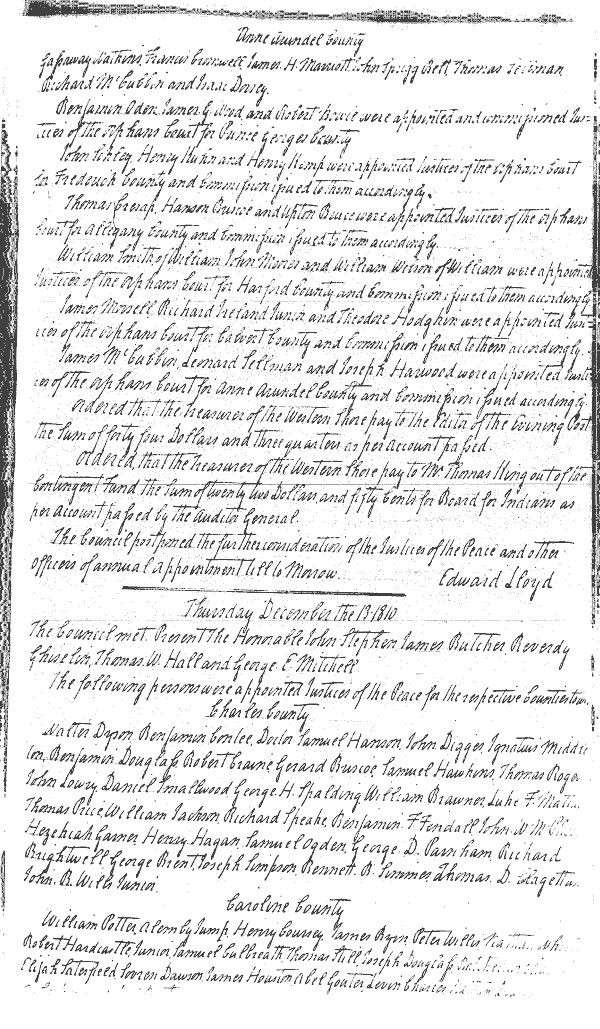 Anne Arundel County
Gassaway Watkins, Francis Cromwell, James H. Marriott, John Sprigg Belt, Thomas
Richard McCubbin and Isaac Dorsey.
Benjamin Oden, James G. Wood, and Robert Bowie were appointed and commissioned Jus-
tices of the Orphans Court for Prince Georges County
John Schley, Henry Kuhn and Henry Kemp were appointed Justices of the Orphans Court
for Frederick County and Commission issued to them accordingly.
Thomas Cresap, Hanson Briscoe and Upton Bruce were appointed Justices of the Orphans
Court for Allegany County and Commission issued to them accordingly.
William Smith of William, John Moores and William Wilson of William were appointed
Justices of the Orphans Court for Harford County and Commission issued to them accordingly
James Morsell, Richard Ireland Junior and Theodore Hodgkin were appointed Jus-
ices of the Orphans Court for Calvert County and Commission issued to them accordingly.
James McCubbin, Leonard Sellman and Joseph Harwood were appointed Justi-
ces of the Orphans Court for Anne Arundel County and Commission issued accordingly
Ordered that the Treasurer of the Western Shore pay to the Editor of the Evening Post
the Sum of forty four Dollars and three quarters as per account passed.
Ordered, that the Treasurer of the Western Shore pay to Mr Thomas King out of the
Contingent Fund the Sum of twenty two Dollars and fifty Cents for Board for Indians as
per Account passed by the Auditor General.
The Council postponed the further consideration of the Justices of the Peace and other
officers of annual appointment till to Morrow. Edward Lloyd
Thursday December the 13 1810
The Council met. Present The Honorable John Stephen James Butcher Reverdy
Ghiselin, Thomas W. Hall and George E Mitchell
The following persons were appointed Justices of the Peace for the respective Counties
Charles County
Walter Dyson, Benjamin Contee, Doctor Samuel Hanson, John Digges, Ignatius Middle
ton, Benjamin Douglass Robert Craine Gerard Briscoe, Samuel Hawkins, Thomas Roger
John Lowry Daniel Smallwood George H. Spalding William Brawner, Luke F.
Thomas Price, William Jackson, Richard Speake, Benjamin F Fendall John
Hezekiah Garner Henry Hagan, Samuel Ogden, George D. Parnham, Richard
Brightwell George Brent, Joseph Simpson Bennett B. Simmes Thomas D.
John B. Wills Junior.
Caroline County
William Potter, Alemby Jump, Henry Coursey, James Byrn Peter Willis
Robert Hardcastle, Junior, Samuel Culbreath, Thomas Still Joseph Douglass
Elijah Saterfield Dawson, James Houston, Abel Levin Charles